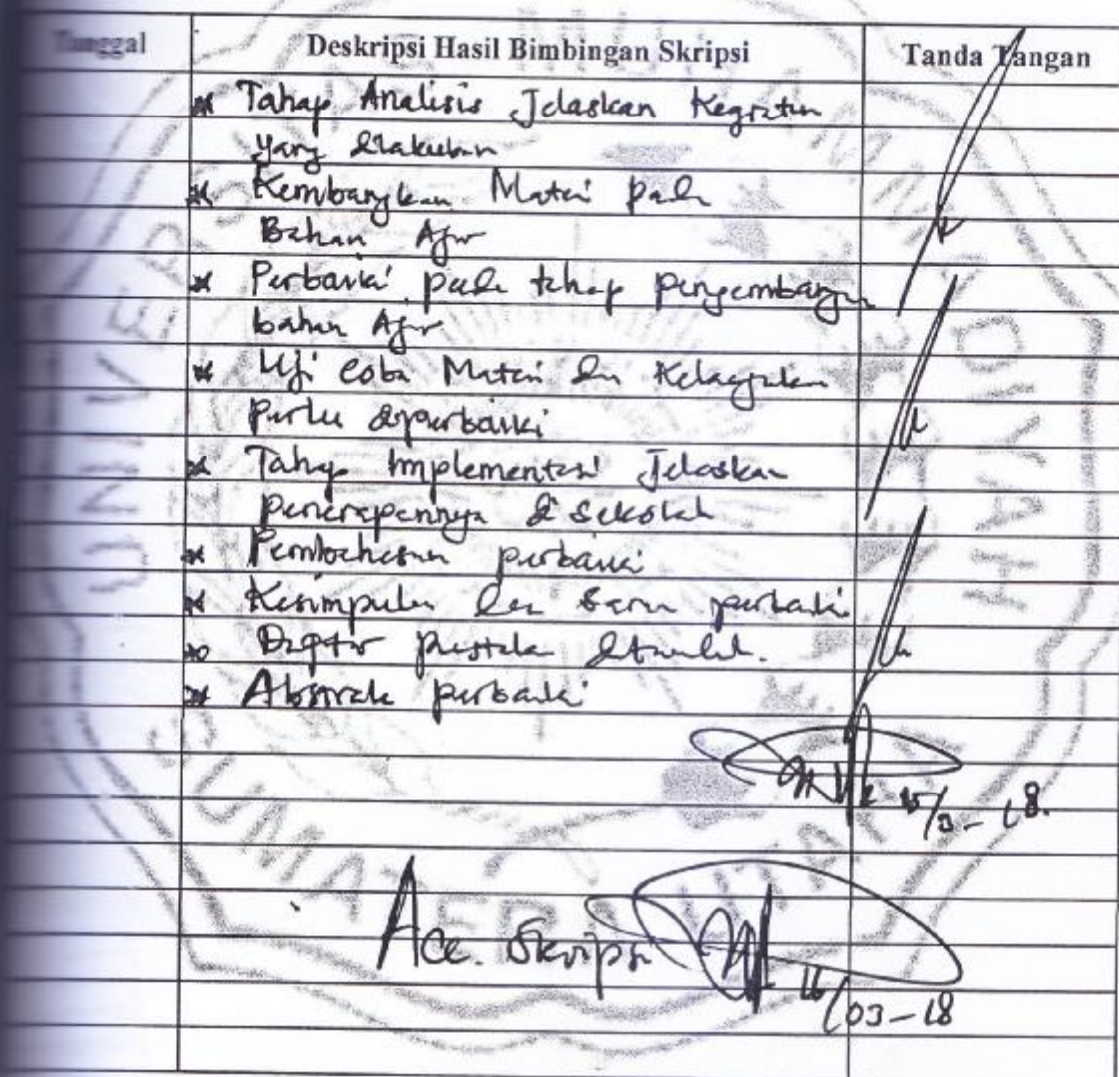 Tanggal Deskripsi Hasil Bimbingan Skripsi Tanda Tangan
* Tahap Analisis Jelaskan Kegiatan
yang dilakukan
* Kembangkan Materi pada
Bahan Ajar
* Perbaiki pada tahap pengembangan
bahan Ajar
* Uji coba Materi dan Kelayakan
perlu diperbaiki
* Tahap Implementasi Jelaskan
penerapannya di sekolah
* Pembahasan perbaiki
* Kesimpulan dan saran perbaiki
* Daftar pustaka ditambah.
* Abstrak perbaiki
15/3-18.
Acc. Skripsi
16/03-18
UNIVERSITAS MUHAMMADIYAH
SUMATERA UTARA